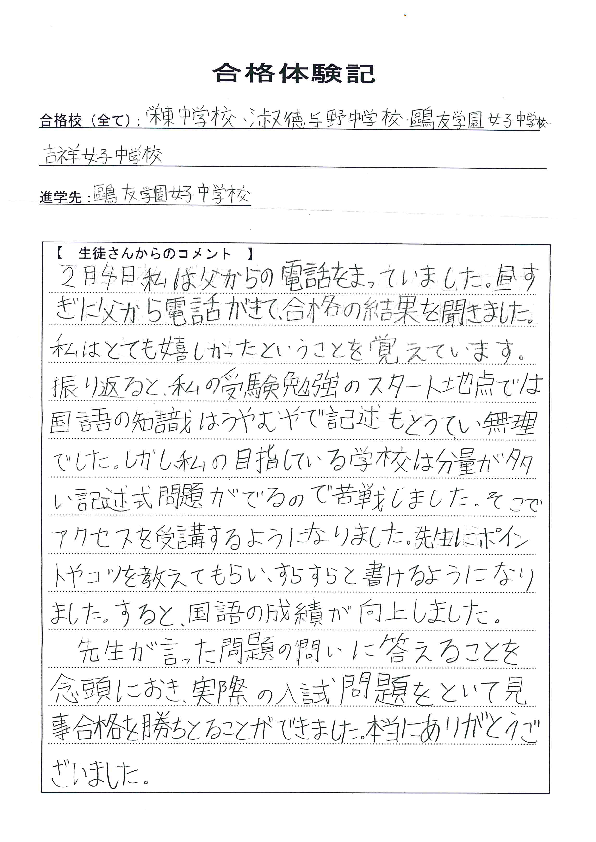 合格体験記
合格校（全て）：栄東中学校・淑徳与野中学校・鷗友学園女子中学校
吉祥女子中学校
進学先：鷗友学園女子中学校
【　生徒さんからのコメント　】
２月４日私は父からの電話をまっていました。昼す
ぎに父から電話がきて、合格の結果を聞きました。
私はとても嬉しかったということを覚えています。
振り返ると、私の受験勉強のスタート地点では
国語の知識はうやむやで記述もとうてい無理
でした。しかし私の目指している学校は分量が多
い記述式問題がでるので苦戦しました。そこで
アクセスを受講するようになりました。先生にポイン
トやコツを教えてもらい、すらすらと書けるようになり
ました。すると、国語の成績が向上しました。
先生が言った問題の問いに答えることを
念頭におき、実際の入試問題をといて見
事合格を勝ちとることができました。本当にありがとうご
ざいました。